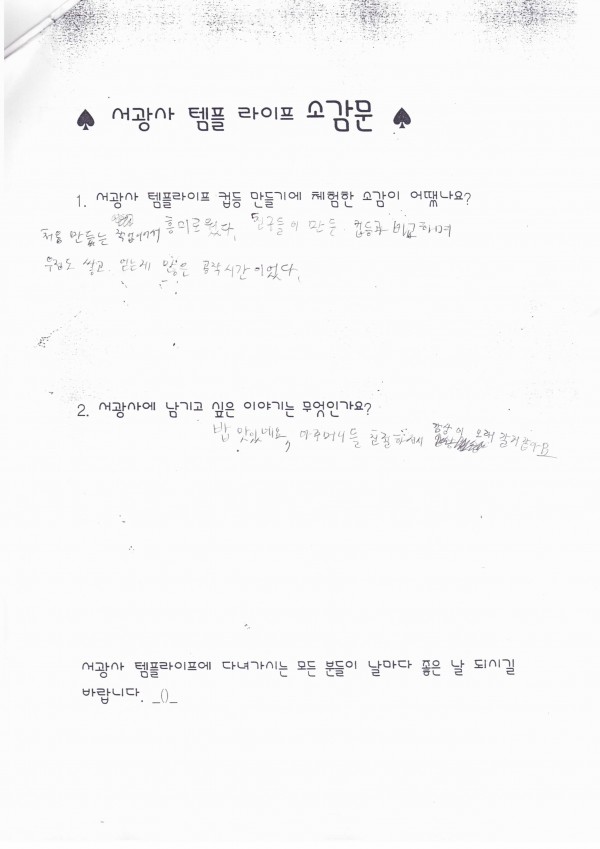 ♠ 서광사 템플 라이프 소감문 ♠
1. 서광사 템플라이프 컵등 만들기에 체험한 소감이 어땠나요?
처음 만들는 흥미로웠다. 친구들이 만든 컵등과 비교하며
쌓고. 많은 공작시간이었다.
2. 서광사에 남기고 싶은 이야기는 무엇인가요?
밥 맛있네요, 아주머니들 친절하셔서 오래
서광사 템플라이프에 다녀가시는 모든 분들이 날마다 좋은 날 되시길
바랍니다. _()_